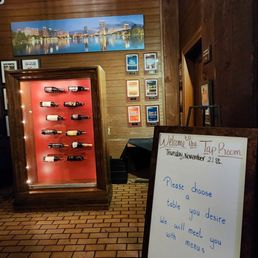 Welcome to the Tap Room
Thursday, November 21st
Please choose
a
table you desire
We will meet you
with menus